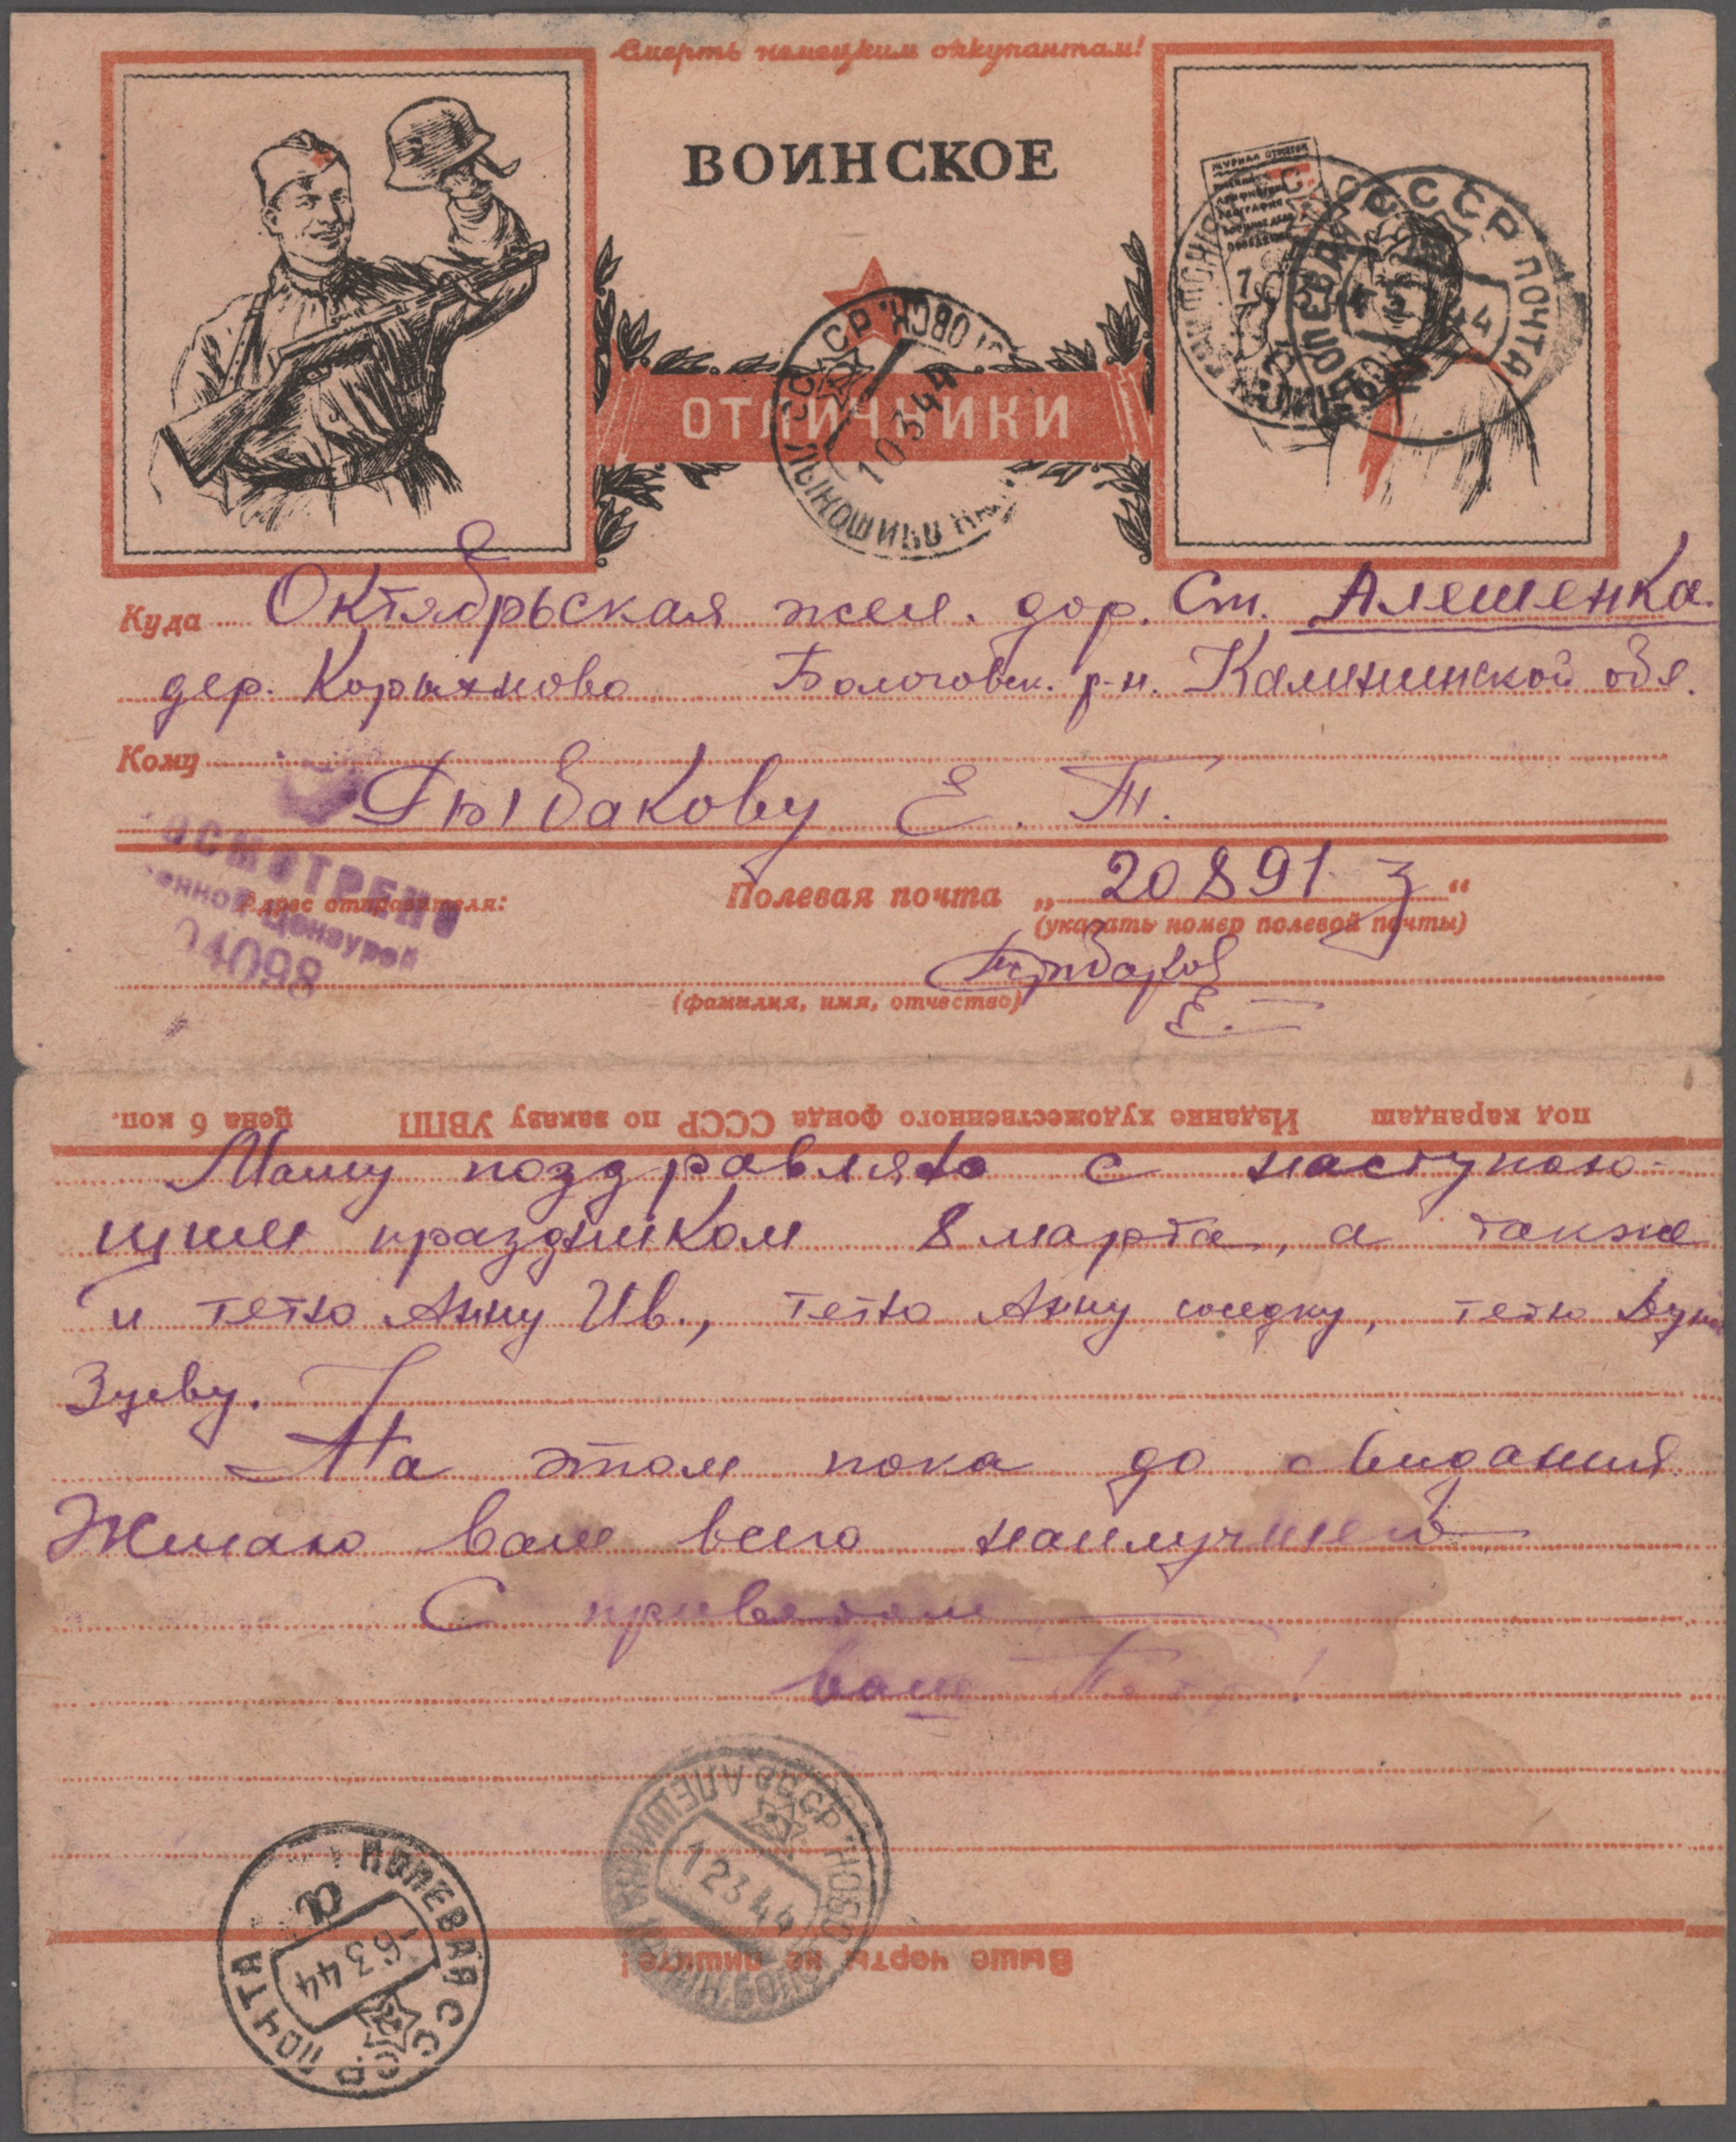 Смерть немецким оккупантам!
ВОИНСКОЕ
ЖУРНАЛ ОТМЕТОК
ГЕОГРАФИЯ
ОТЛИЧНИКИ
СССР ПОЧТА
ПОЛЕВАЯ
44
10 3 44
Куда Октябрьская жел. дор. Ст. Алешенка.
дер. Корыхново Бологовск. р-н. Калининской обл.
Кому
Рыбакову Е. Т.
ОСМОТРЕНО
енной Цензурой
04098
Адрес отправителя:
Полевая почта „20891 З“
(указать номер полевой почты)
Рыбаков
Е.
(фамилия, имя, отчество)
под карандаш Издание художественного фонда СССР по заказу УВПП цена 6 коп.
Машу поздравляю с наступаю-
щим праздником 8 марта, а также
и тетю Анну Ив., тетю Анну соседку, тетю
Зуеву.
На этом пока до свидания.
Желаю вам всего наилучшего
С приветом
ваш
СССР
12 3 44
ПОЛЕВАЯ СССР ПОЧТА
а
-6 3 44
Выше черты не пишите!